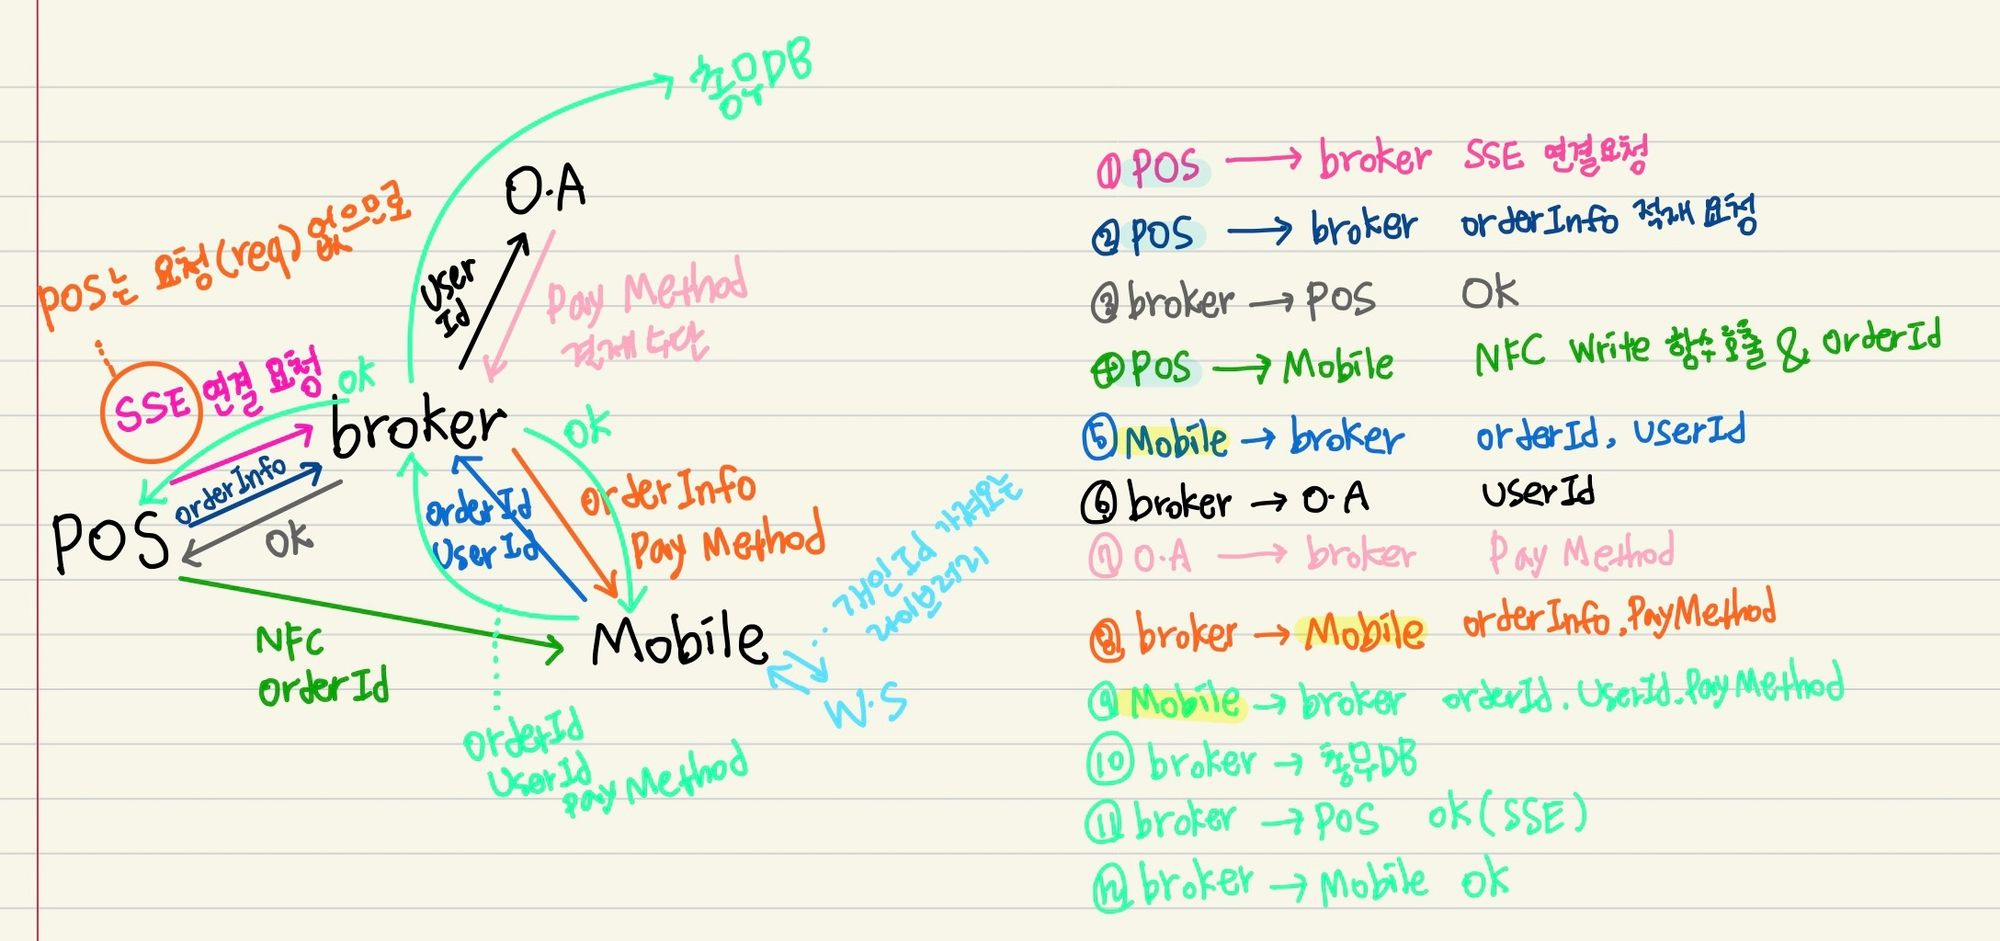 총무DB
O.A
POS는 요청(req) 없으므로
User
Id
Pay Method
결제 수단
SSE 연결 요청
ok
broker
ok
orderInfo
orderId
UserId
orderInfo
Pay Method
POS
ok
개인Id 가져오는
라이브러리
Mobile
NFC
orderId
W.S
orderId
UserId
Pay Method
① POS → broker SSE 연결요청
② POS → broker orderInfo 적재 요청
③ broker → POS Ok
④ POS → Mobile NFC Write 함수호출 & orderId
⑤ Mobile → broker orderId, UserId
⑥ broker → O.A UserId
⑦ O.A → broker Pay Method
⑧ broker → Mobile orderInfo, PayMethod
⑨ Mobile → broker orderId, UserId, PayMethod
⑩ broker → 총무DB
⑪ broker → POS ok (SSE)
⑫ broker → Mobile ok